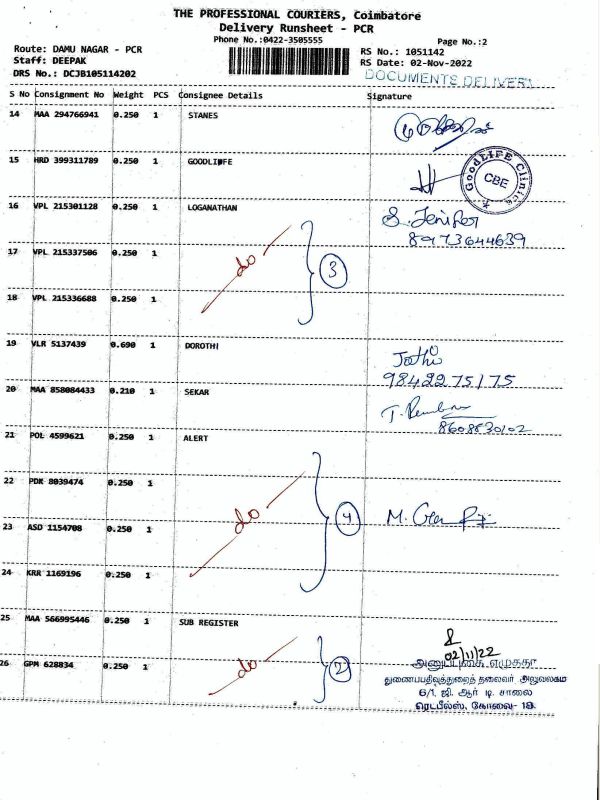 THE PROFESSIONAL COURIERS, Coimbatore
Delivery Runsheet - PCR
Phone No.:0422-3505555
Page No.:2
Route: DAMU NAGAR - PCR
RS No.: 1051142
Staff: DEEPAK
RS Date: 02-Nov-2022
DRS No.: DCJB105114202
DOCUMENTS DELIVERY
S No Consignment No Weight PCS Consignee Details Signature
14 MAA 294766941 0.250 1 STANES
15 HRD 399311789 0.250 1 GOODLIFE
GoodLIFE Clinics
CBE
16 VPL 215301128 0.250 1 LOGANATHAN
S. Jenifer
8973644639
17 VPL 215337506 0.250 1
do
3
18 VPL 215336688 0.250 1
19 VLR 5137439 0.690 1 DOROTHI
Jothi
9842275175
20 MAA 858084433 0.210 1 SEKAR
8608830102
21 POL 4599621 0.250 1 ALERT
22 PDK 8039474 0.250 1
do
4
M.
23 ASD 1154708 0.250 1
24 KRR 1169196 0.250 1
25 MAA 566995446 0.250 1 SUB REGISTER
02/11/22
26 GPM 628834 0.250 1
do
2
துணைப்பதிவுத்துறைத் தலைவர் அலுவலகம்
6/1, ஜி. ஆர் டி. சாலை
ரெடபீல்ஸ், கோவை- 18.